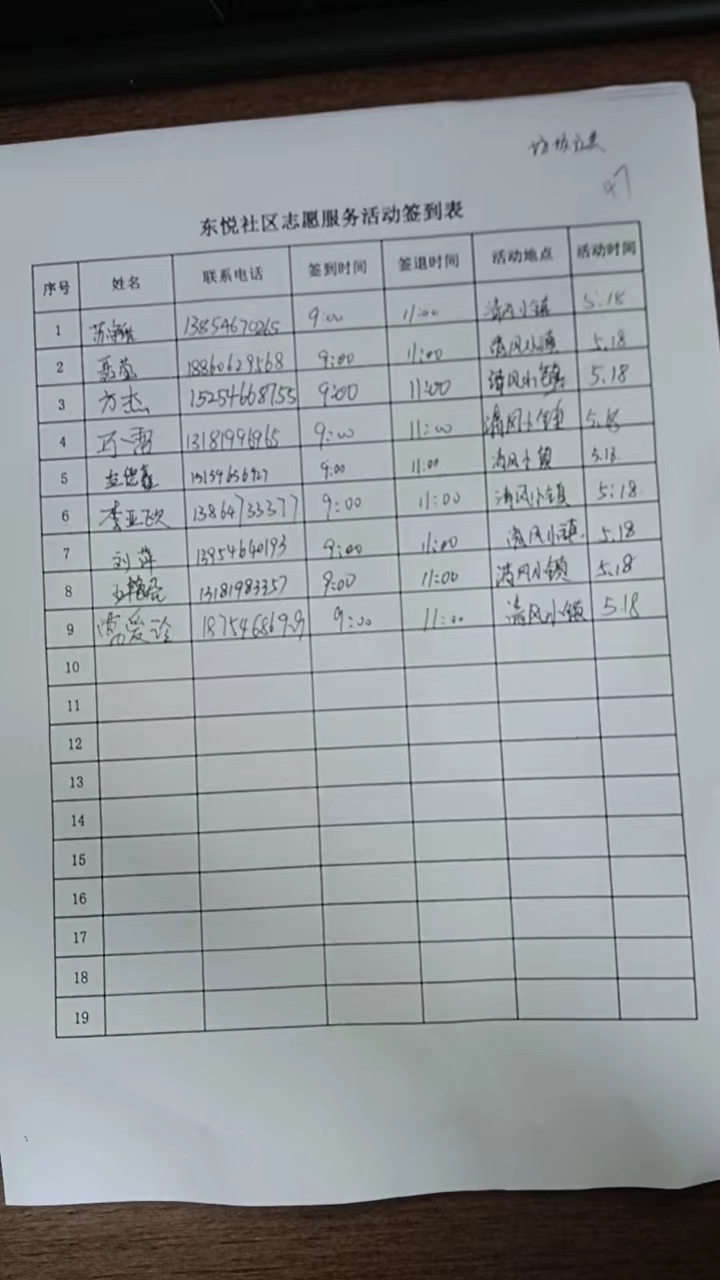 东悦社区志愿服务活动签到表
序号 姓名 联系电话 签到时间 签退时间 活动地点 活动时间
1 13854670265 9:00 11:00 清风小镇 5.18
2 18860629568 9:00 11:00 清风小镇 5.18
3 方杰 15254668755 9:00 11:00 清风小镇 5.18
4 13181996965 9:00 11:00 清风小镇 5.18
5 9:00 11:00 清风小镇 5.18
6 李亚欧 13864733377 9:00 11:00 清风小镇 5:18
7 刘萍 13954640193 9:00 11:00 清风小镇 5.18
8 13181983357 9:00 11:00 清风小镇 5.18
9 9:00 11:00 清风小镇 5.18
10
11
12
13
14
15
16
17
18
19